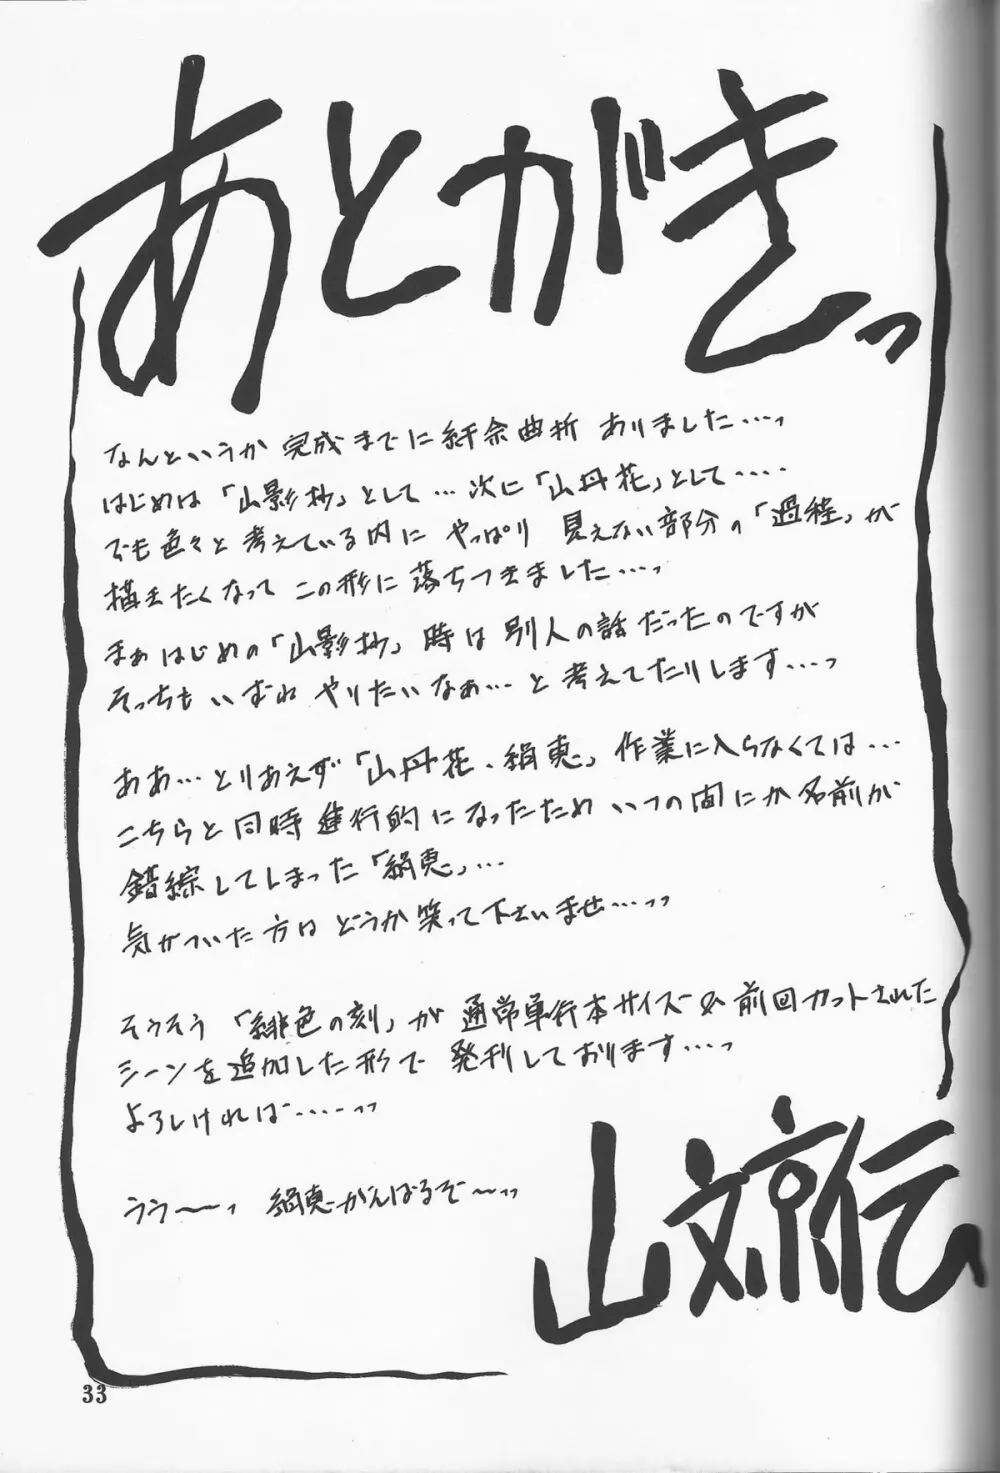 あとがきっ
なんというか 完成までに紆余曲折 ありました…っ
はじめは「山影抄」として…次に「山丹花」として‥‥
でも色々と 考えている内に やっぱり 見えない部分の「過程」が
描きたくなって この形に 落ちつきました…っ
まぁはじめの「山影抄」時は 別人の話だったのですが
そっちも いずれ やりたいなぁ…と 考えてたりします…っ
ああ…とりあえず「山丹花・絹恵」作業に入らなくては…
こちらと同時進行的になったため いつの間にか名前が
錯綜してしまった「絹恵」…
気がついた方は どうか笑って下さいませ…っっ
そうそう「緋色の刻」が 通常単行本サイズ& 前回カットされた
シーンを追加した形で 発刊しております…っ
よろしければ‥‥っっ
うう〜〜っ 絹恵がんばるぞ〜っっ
山文京伝
33